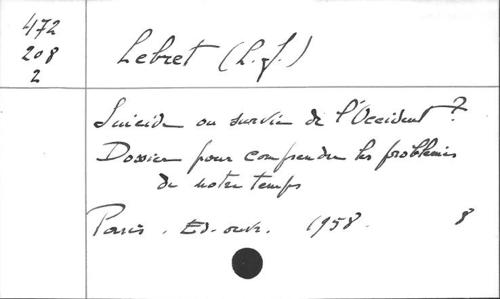 472
208
2
Lebret (L. J.)
Suicide ou survie de l'Occident ?
Dossier pour comprendre les problèmes
de notre temps
Paris. Ed. ouvr. 1958. 8